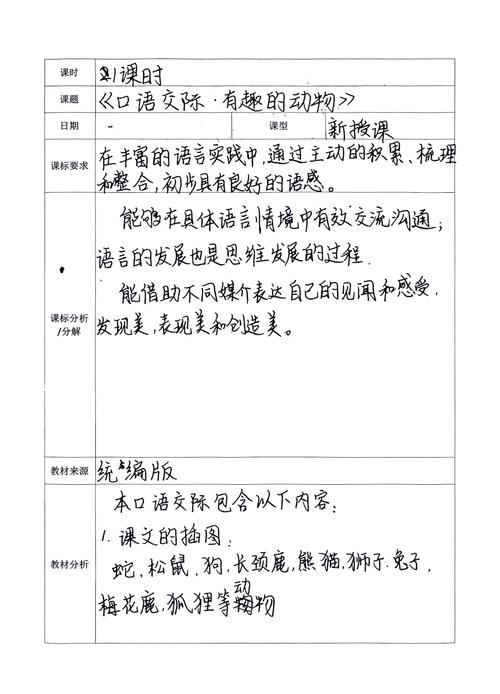 课时 1课时
课题 《口语交际·有趣的动物》
日期 - 课型 新授课
课标要求 在丰富的语言实践中,通过主动的积累、梳理
和整合,初步具有良好的语感。
能够在具体语言情境中有效交流沟通;
语言的发展也是思维发展的过程.
课标分析
/分解
能借助不同媒介表达自己的见闻和感受,
发现美,表现美和创造美。
教材来源 统编版
教材分析
本口语交际包含以下内容:
1. 课文的插图:
蛇、松鼠、狗、长颈鹿,熊猫.狮子.兔子,
梅花鹿,狐狸等动物